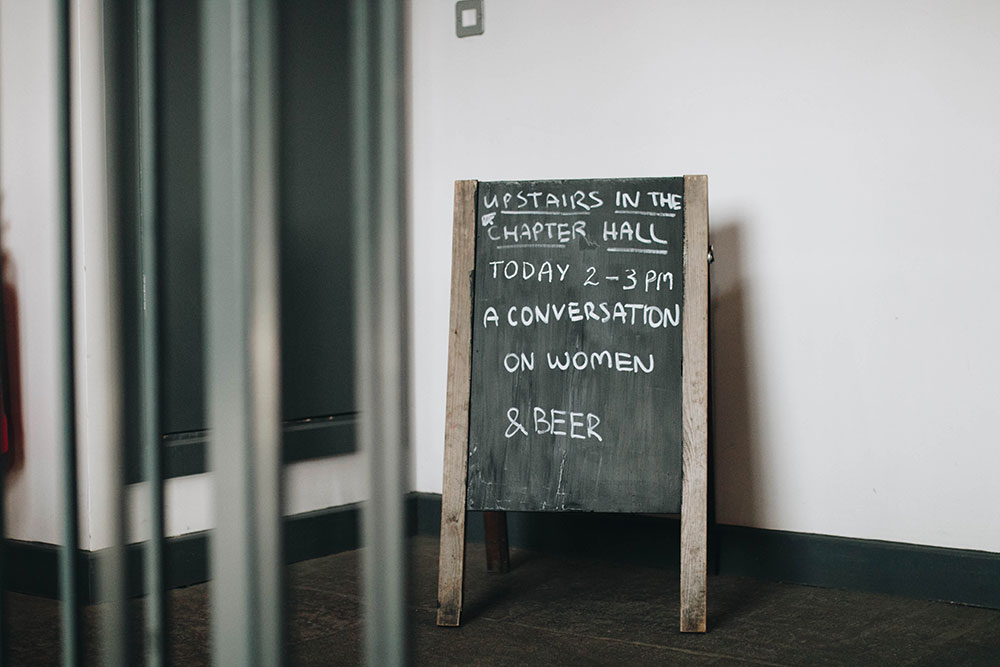 UPSTAIRS IN THE
CHAPTER HALL
TODAY 2-3 PM
A CONVERSATION
ON WOMEN
& BEER